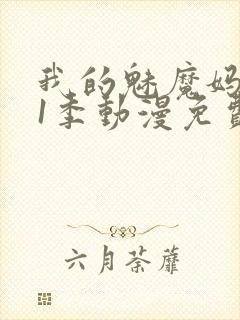 我的魅魔妈
1季動漫免費
六月荼蘼